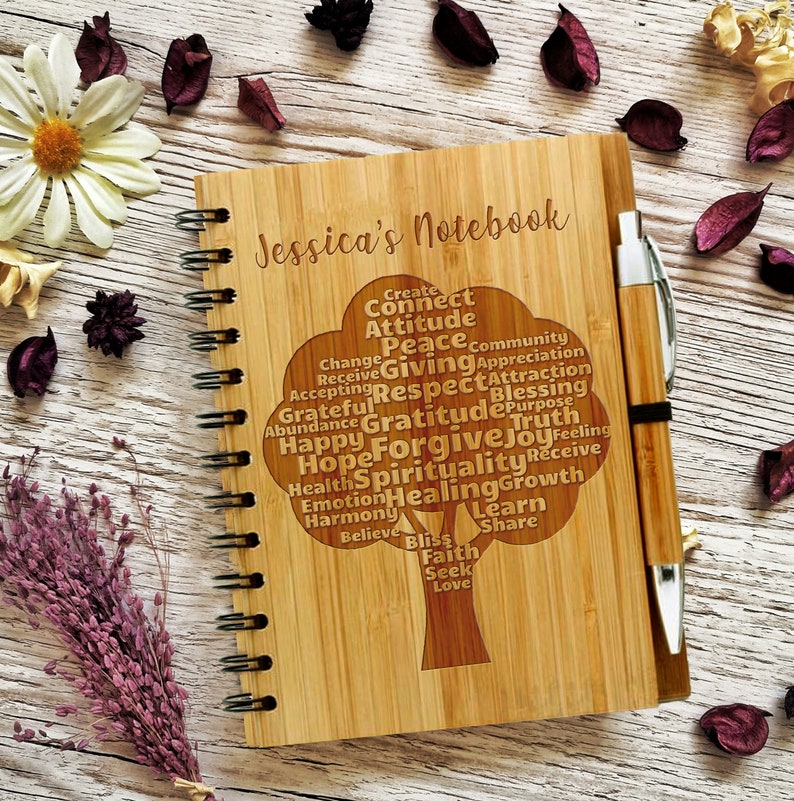 Jessica's Notebook
Create
Connect
Attitude
Peace
Community
Change
Giving
Appreciation
Receive
Accepting
Respect
Attraction
Blessing
Grateful
Gratitude
Purpose
Abundance
Truth
Happy
Forgive
Joy
Feeling
Hope
Spirituality
Receive
Health
Healing
Growth
Emotion
Harmony
Learn
Share
Believe
Bliss
Faith
Seek
Love